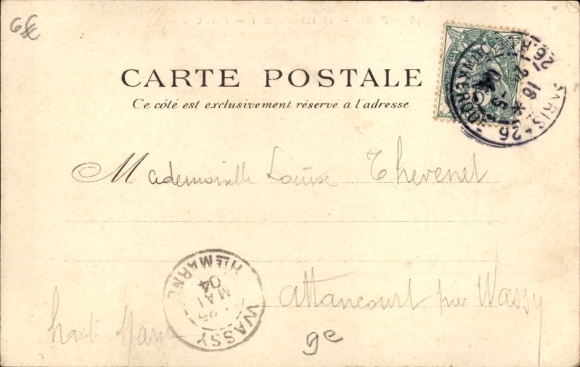 6€
CARTE POSTALE
Ce côté est exclusivement réservé à l'adresse
PARIS * 26
16
Mademoiselle Louise Thevenet
Attancourt par Wassy
haute Marne
WASSY
HTE MARNE
26
MAI
04
9e